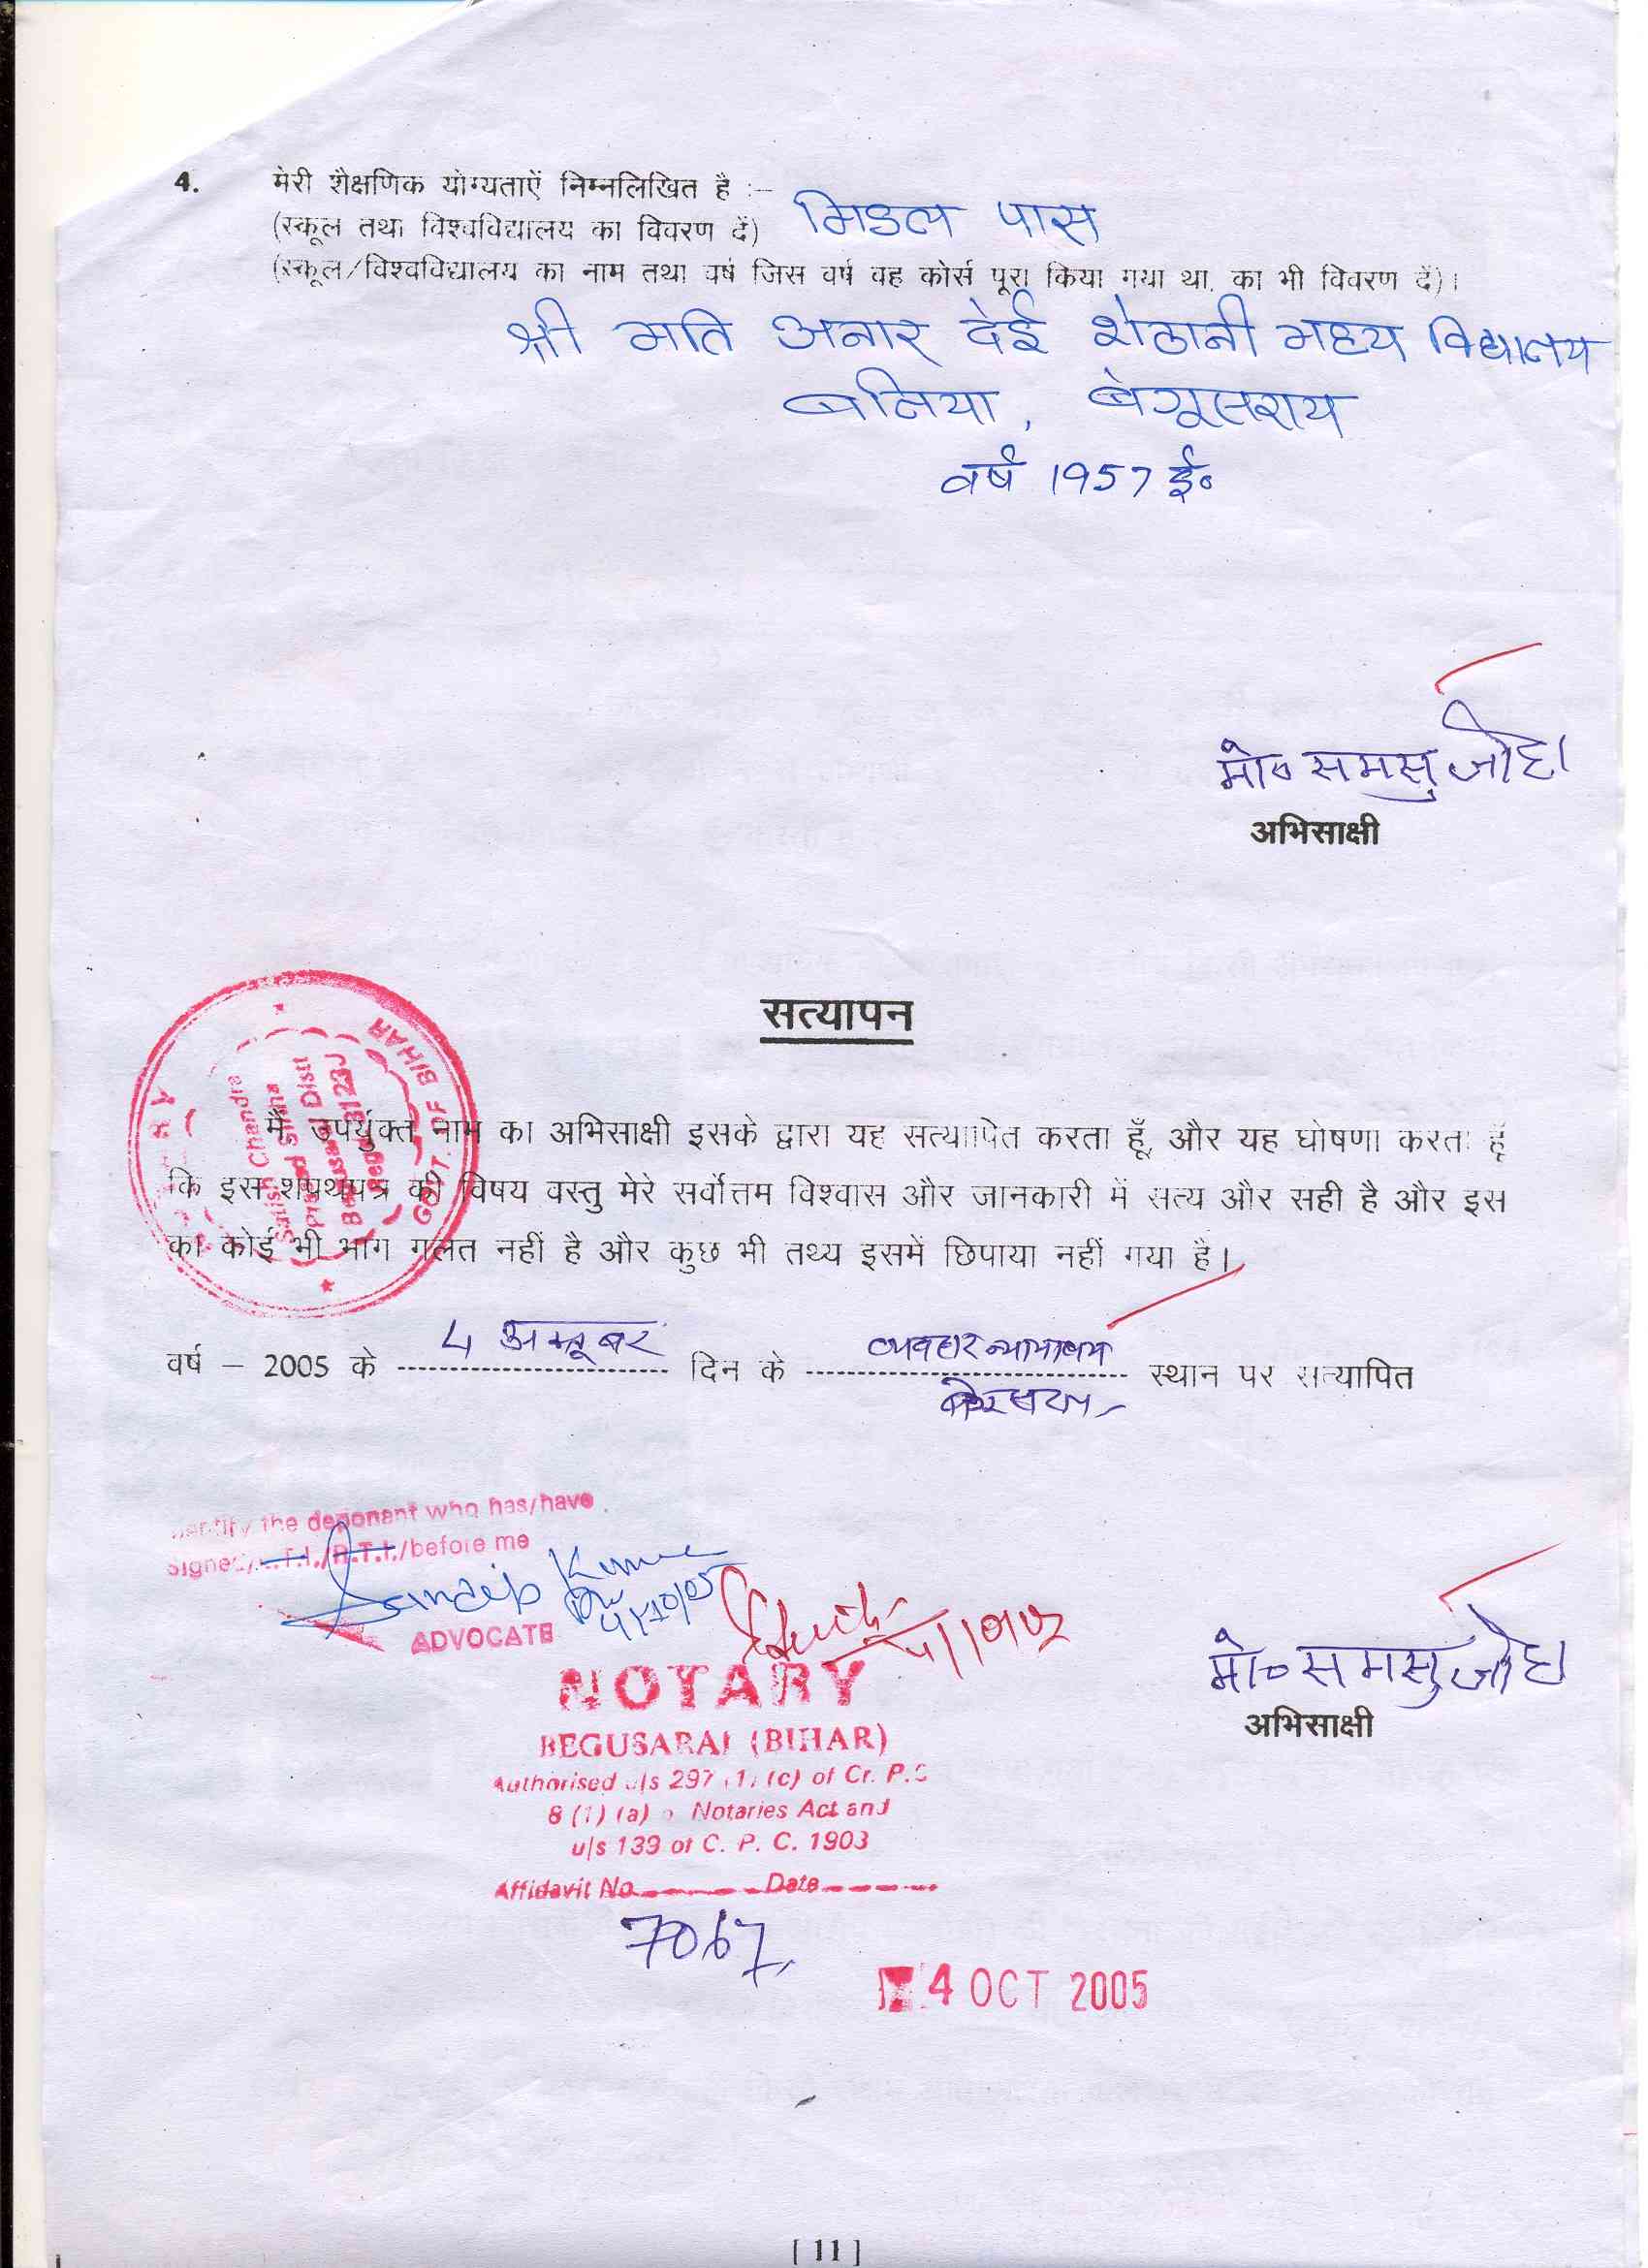 4. मेरी शैक्षणिक योग्यताऐं निम्नलिखित है :–
(स्कूल तथा विश्वविद्यालय का विवरण दें) मिडल पास
(स्कूल/विश्वविद्यालय का नाम तथा वर्ष जिस वर्ष वह कोर्स पूरा किया गया था, का भी विवरण दें)।
श्री मति अनार देई शेठानी मध्य विद्यालय
बलिया, बेगूसराय
वर्ष 1957 ई०
मो० समसु जोहा
अभिसाक्षी
सत्यापन
GOVT. OF BIHAR
Satish Chandra
Prasad Sinha
Begusarai Distt
मैं, उपर्युक्त नाम का अभिसाक्षी इसके द्वारा यह सत्यापित करता हूँ, और यह घोषणा करता हूँ
कि इस शपथपत्र की विषय वस्तु मेरे सर्वोत्तम विश्वास और जानकारी में सत्य और सही है और इस
का कोई भी भाग गलत नहीं है और कुछ भी तथ्य इसमें छिपाया नहीं गया है।
वर्ष – 2005 के 4 अक्तूबर दिन के व्यवहार न्यायालय स्थान पर सत्यापित
identify the deponent who has/have
Signed/L.T.I./R.T.I./before me
Sandip Kumar
4/10/05
ADVOCATE
4/10/05
NOTARY
BEGUSARAI (BIHAR)
Authorised u/s 297 (1) (c) of Cr. P.C
8 (1) (a) o Notaries Act and
u/s 139 of C. P. C. 1903
Affidavit No Date
7067
4 OCT 2005
मो० समसु जोहा
अभिसाक्षी
[ 11 ]